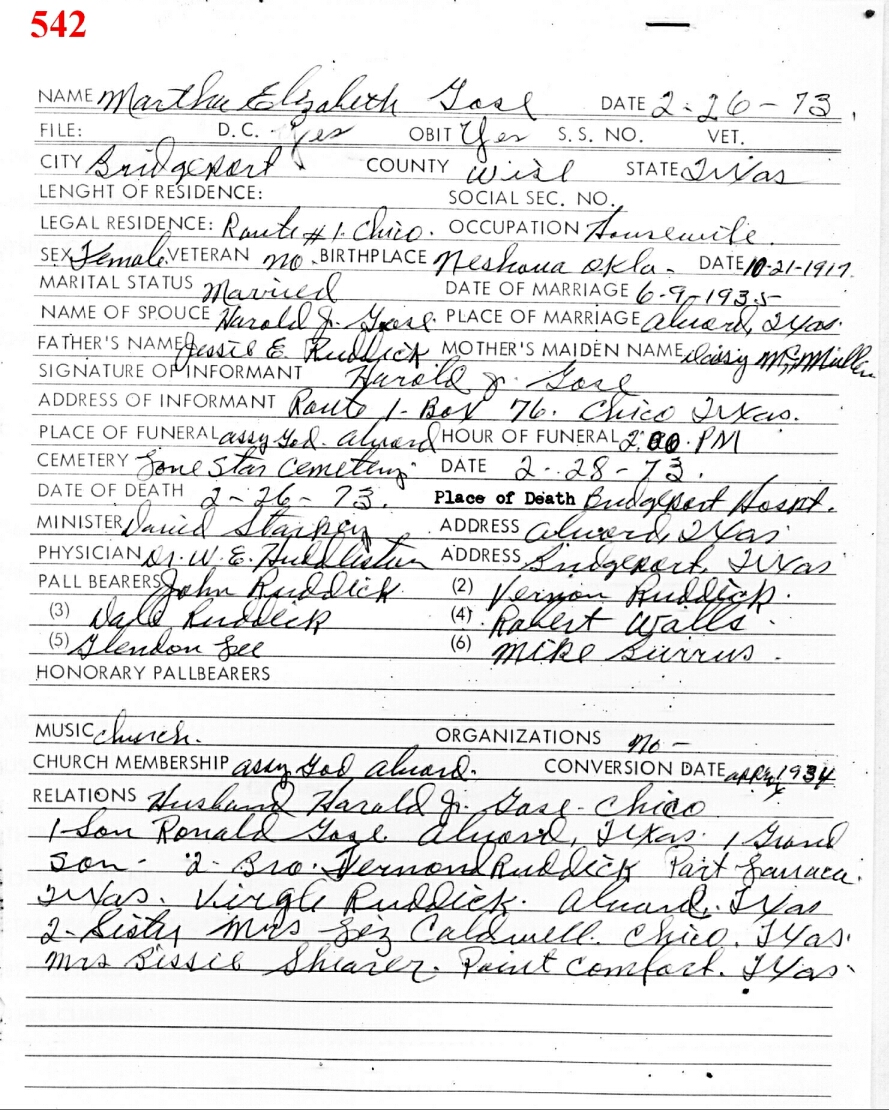 542
NAME Martha Elizabeth Gose DATE 2-26-73
FILE: D.C. Yes OBIT Yes S.S. NO. VET.
CITY Bridgeport COUNTY Wise STATE Texas
LENGHT OF RESIDENCE: SOCIAL SEC. NO.
LEGAL RESIDENCE: Route #1. Chico. OCCUPATION Housewife.
SEX Female VETERAN no. BIRTHPLACE Okla. DATE 10-21-1917
MARITAL STATUS Married DATE OF MARRIAGE 6-9-1935
NAME OF SPOUCE Harold J. Gose. PLACE OF MARRIAGE Alvord, Texas.
FATHER'S NAME Jessie E. Ruddick MOTHER'S MAIDEN NAME Daisy McMullen
SIGNATURE OF INFORMANT Harold J. Gose
ADDRESS OF INFORMANT Route 1-Box 76. Chico Texas.
PLACE OF FUNERAL assy God. Alvord HOUR OF FUNERAL 2:00 PM
CEMETERY Lone Star Cemetery DATE 2-28-73.
DATE OF DEATH 2-26-73. Place of Death Bridgeport Hospt.
MINISTER David Starkey ADDRESS Alvord, Texas
PHYSICIAN Dr. W. E. Huddleston ADDRESS Bridgeport, Texas
PALL BEARERS John Ruddick. (2) Vernon Ruddick.
(3) Dale Ruddick (4) Robert Walls.
(5) Glendon Lee (6) Mike Burrus.
HONORARY PALLBEARERS
MUSIC church. ORGANIZATIONS no-
CHURCH MEMBERSHIP assy God, Alvord. CONVERSION DATE 1934
RELATIONS Husband Harold J. Gose - Chico
1-Son Ronald Gose Alvord, Texas. 1 Grand
son- 2-Bro. Vernon Ruddick Port Lavaca.
Texas. Virgle Ruddick. Alvord, Texas
2-Sister Mrs Liz Caldwell. Chico, Texas.
Mrs Bissie Shearer. Point Comfort. Texas.